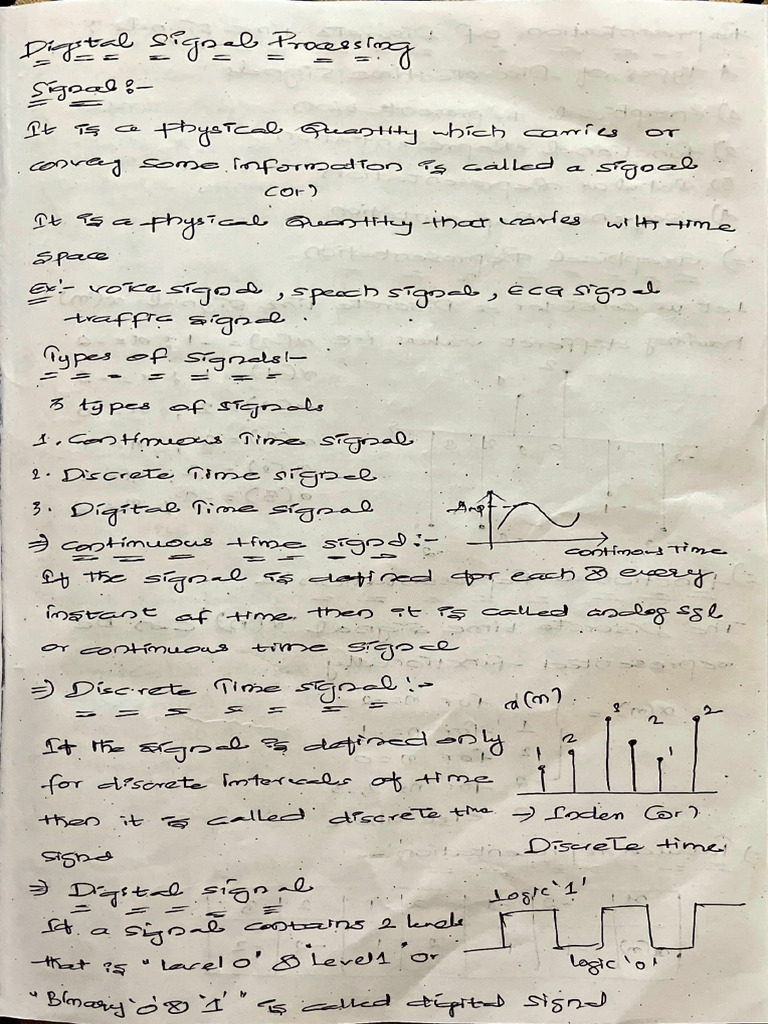 Digital Signal Processing
Signal:-
It is a physical Quantity which carries or
convey some information is called a signal
(or)
It is a physical Quantity that varies with time
space
Ex:- voice signal, speech signal, ECG signal
traffic signal.
Types of signals:-
3 types of signals
1. Continuous Time signal
2. Discrete Time signal
3. Digital Time signal
Amp
continous Time
⇒ continuous time signal:-
If the signal is defined for each & every
instant of time then it is called analog sgl
or continuous time signal
⇒ Discrete Time signal:-
x(n)
1 2 3 2 1 2
If the signal is defined only
for discrete intervals of time
then it is called discrete time
signal
→ Inden (or)
Discrete time
⇒ Digital signal
Logic '1'
logic '0'
If a signal contains 2 levels
that is "Level 0" & "Level 1" or
"Binary '0' & '1'" is called digital signal